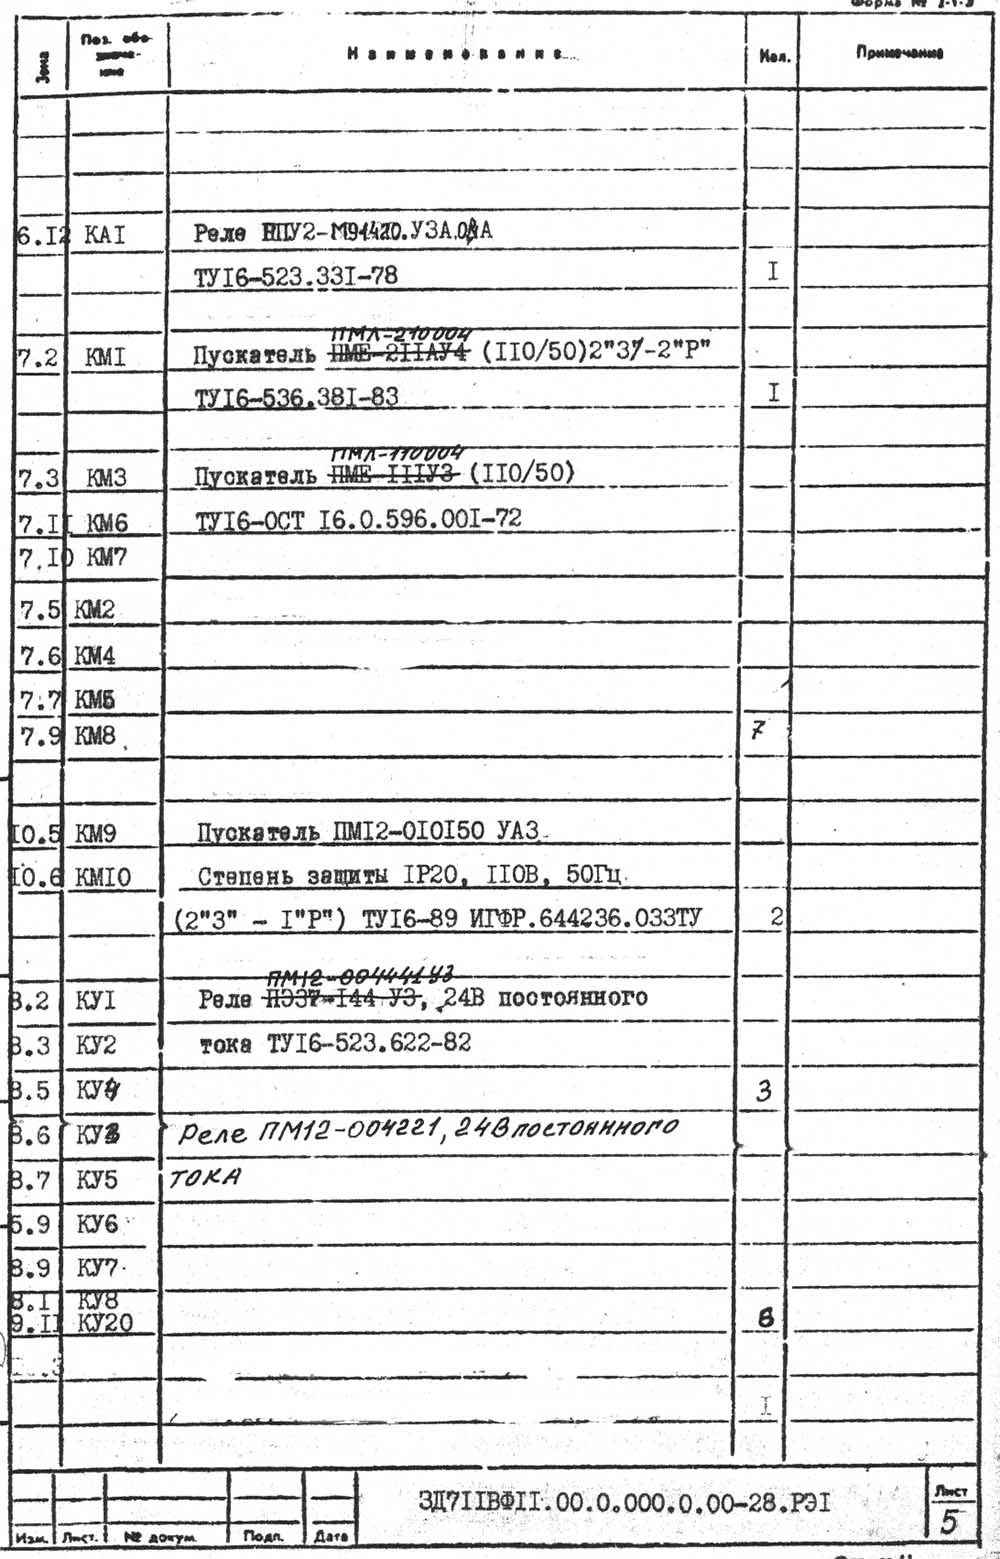 Форма № 2-1-3
Зона
Поз. обо-
значе-
ние
Наименование
Кол.
Примечание
6.I2 KAI Реле М91420.УЗА
ТУI6-523.33I-78 I
ПМЛ-210004
7.2 KMI Пускатель ПМЕ-2IIАУ4 (II0/50)2"З"-2"Р"
ТУI6-536.38I-83 I
ПМЛ-110004
7.3 КМ3 Пускатель ПМЕ-IIIУ3 (II0/50)
7.II КМ6 ТУI6-ОСТ I6.0.596.00I-72
7.I0 КМ7
7.5 КМ2
7.6 КМ4
7.7 КМ5
7.9 КМ8 7
I0.5 КМ9 Пускатель ПМI2-0I0I50 УАЗ
I0.6 КМI0 Степень защиты IP20, II0В, 50Гц
(2"З" - I"Р") ТУI6-89 ИГФР.644236.033ТУ 2
ПМ12-004441УЗ
8.2 КУI Реле ПЭ37-I44 УЗ, 24В постоянного
8.3 КУ2 тока ТУI6-523.622-82
8.5 КУ4 3
8.6 КУ3 Реле ПМ12-004221, 24В постоянного
8.7 КУ5 тока
5.9 КУ6
8.9 КУ7
8.I КУ8
9.II КУ20 8
I
3Д7IIВФII.00.0.000.0.00-28.РЭI
Лист
5
Изм. Лист. № докум. Подп. Дата